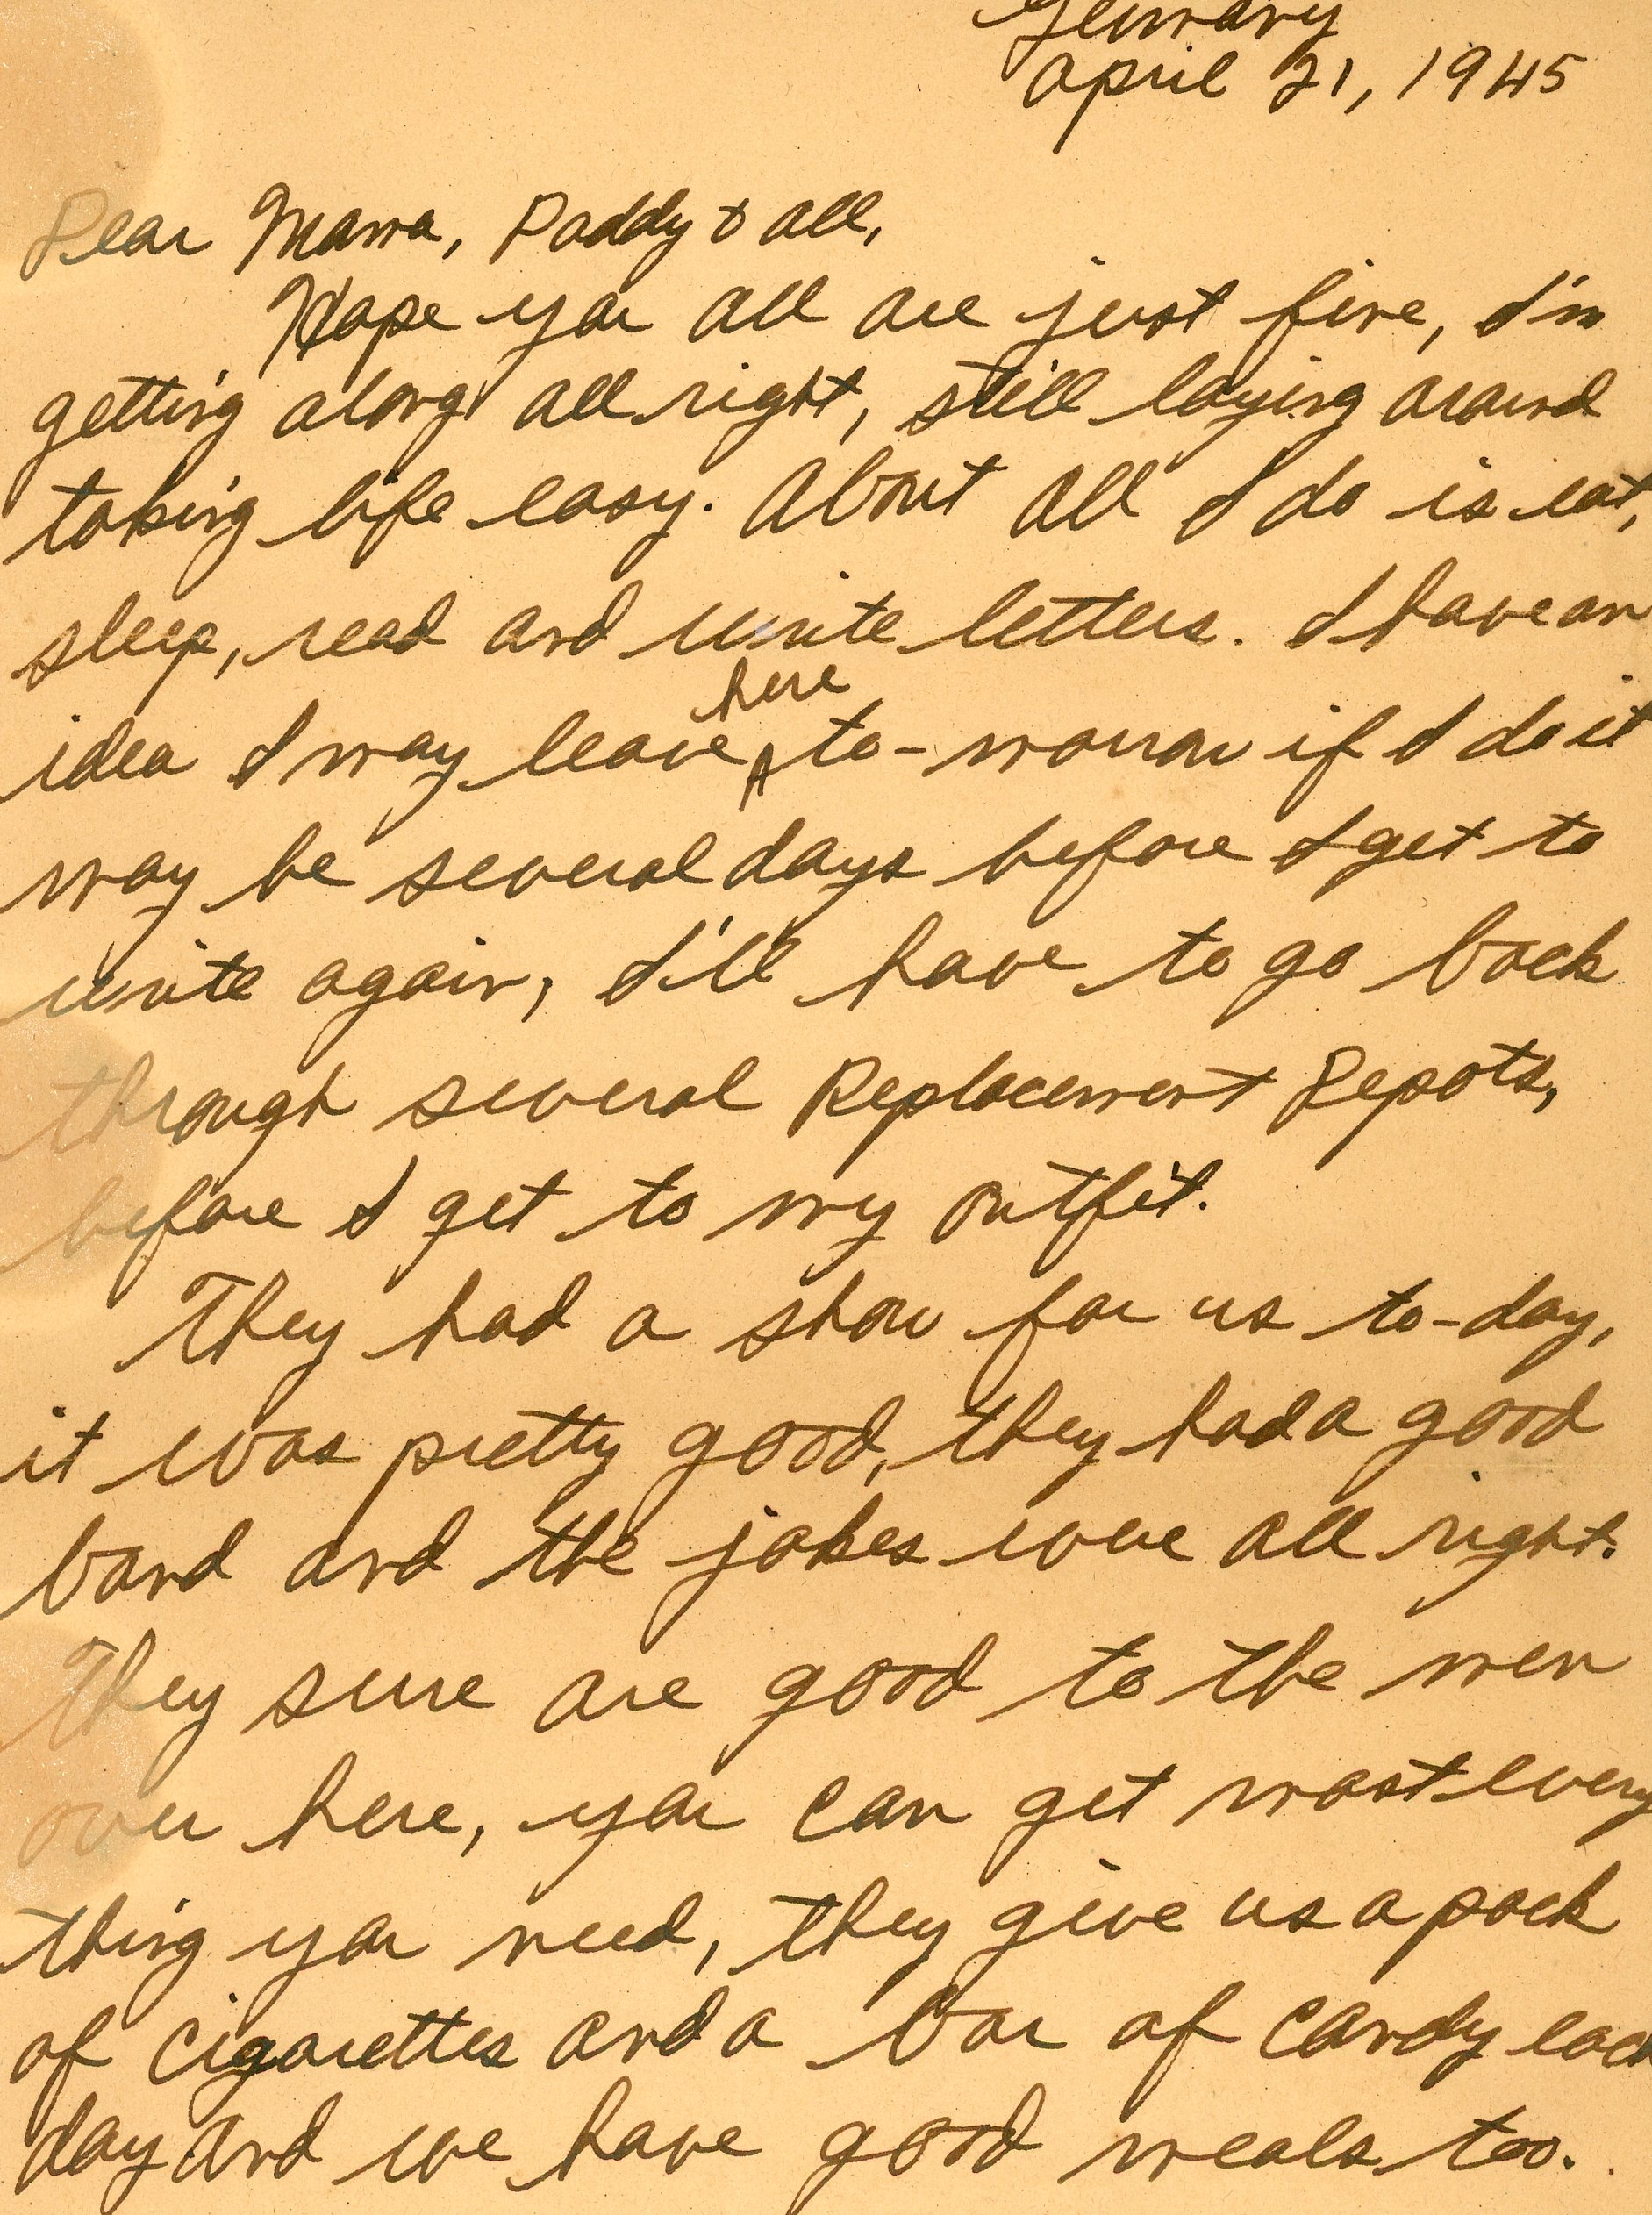 Germany
April 21, 1945
Dear Mama, Daddy & all,
Hope you all are just fine, I'm
getting along all right, still laying around
taking life easy. About all I do is eat,
sleep, read and write letters. I have an
here
idea I may leave ^ to-morrow if I do it
may be several days before I get to
write again, I'll have to go back
through several Replacement Depots,
before I get to my outfit.
They had a show for us to-day,
it was pretty good, they had a good
band and the jokes were all right.
They sure are good to the men
over here, you can get most every
thing you need, they give us a pack
of cigarettes and a bar of candy each
day and we have good meals too.